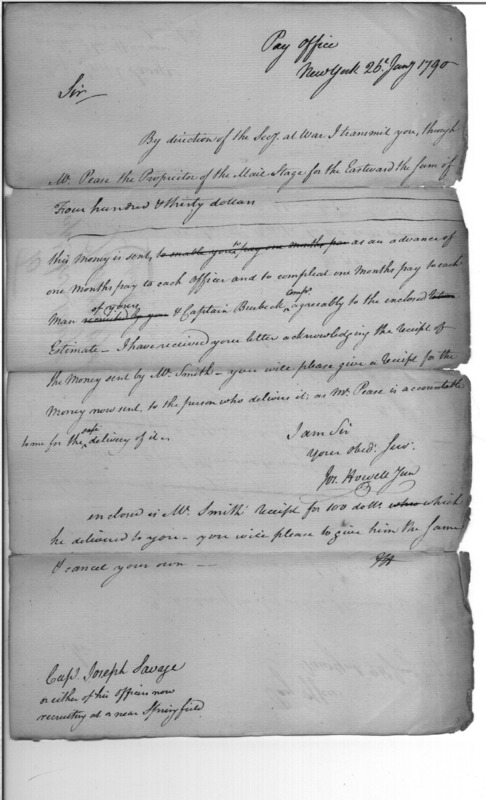 Pay Office
New York 26t Jany 1790
Sir
By direction of the Secy. at War I transmit you, through
Mr. Pease the Proprietor of the Mail Stage for the Eastward the Sum of
Four hundred & thirty dollars
this Money is sent, to enable you to pay one months pay as an advance of
one Months pay to each Officer and to compleat one Months pay to each
Man recruited by you of yours & Captain Burbeck Compy. agreeably to the enclosed
Estimate - I have received your letter acknowledging the receipt of
the Money sent by Mr. Smith - you will please give a receipt for the
Money now sent, to the person who delivers it; as Mr. Pease is accountable
to me for the safe delivery of it -
I am Sir
Your Obed. Serv.
Jos. Howell Jun
enclosed is Mr. Smith receipt for 100 dolls. who which
he delivered to you - you will please to give him the same
& cancel your own -
JH
Cap. Joseph Savage
or either of his officers now
recruiting at or near Springfield